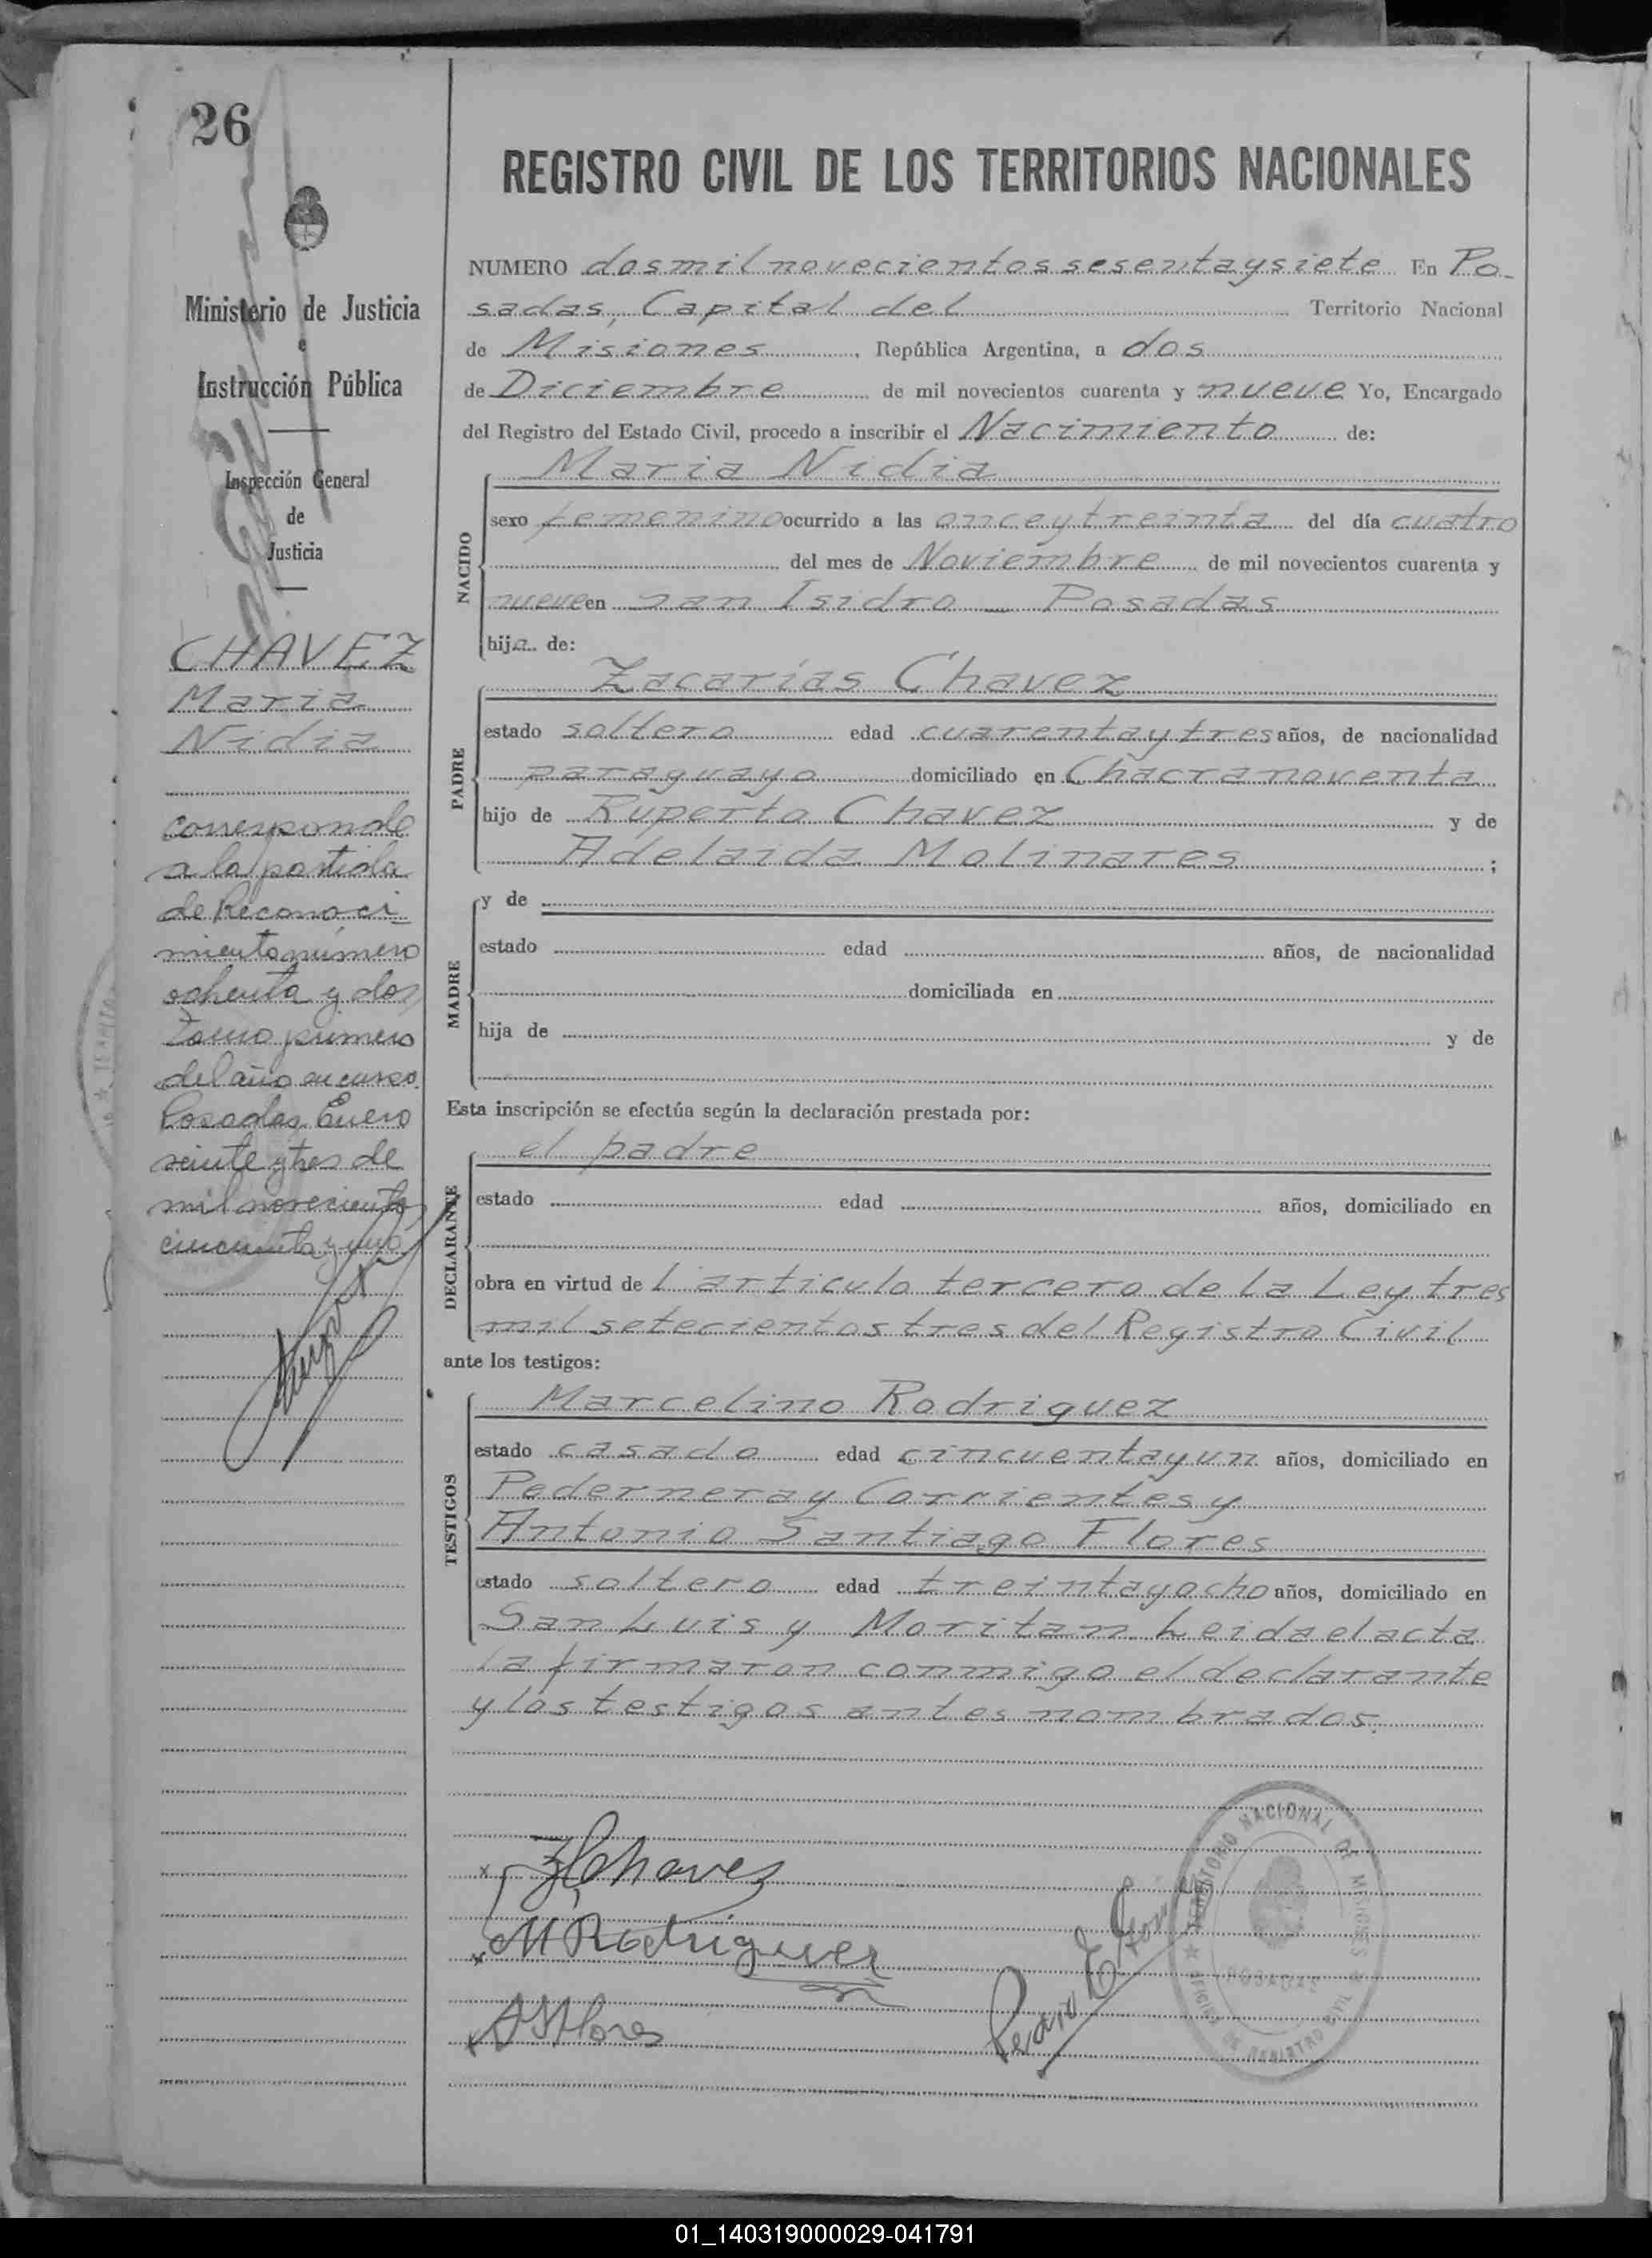 26
Ministerio de Justicia
e
Instrucción Pública
Inspección General
de
Justicia
CHAVEZ
Maria
Nidia
corresponde
a la partida
de Reconoci-
miento número
ochenta y dos
Tomo primero
del año en curso.
Posadas, Enero
veinte y tres de
mil novecientos
cincuenta y uno
REGISTRO CIVIL DE LOS TERRITORIOS NACIONALES
NUMERO dos mil novecientos sesenta y siete En Po-
sadas, Capital del Territorio Nacional
de Misiones, República Argentina, a dos
de Diciembre de mil novecientos cuarenta y nueve Yo, Encargado
del Registro del Estado Civil, procedo a inscribir el Nacimiento de:
NACIDO
Maria Nidia
sexo femenino ocurrido a las once y treinta del día cuatro
del mes de Noviembre de mil novecientos cuarenta y
nueve en San Isidro _ Posadas
hija de:
PADRE
Zacarías Chavez
estado soltero edad cuarenta y tres años, de nacionalidad
paraguayo domiciliado en Chacra noventa
hijo de Ruperto Chavez y de
Adelaida Molinares ;
MADRE
y de
estado edad años, de nacionalidad
domiciliada en
hija de y de
Esta inscripción se efectúa según la declaración prestada por:
DECLARANTE
el padre
estado edad años, domiciliado en
obra en virtud de l articulo tercero de la Ley tres
mil setecientos tres del Registro Civil
ante los testigos:
TESTIGOS
Marcelino Rodriguez
estado casado edad cincuenta y un años, domiciliado en
Pedernera y Corrientes y
Antonio Santiago Flores
estado soltero edad treinta y ocho años, domiciliado en
San Luis y Moritan Leida el acta
la firmaron conmigo el declarante
y los testigos antes nombrados.
x ZChavez
x M Rodriguez
x A S Flores
Pedro E
TERRITORIO NACIONAL DE MISIONES
OFICINA DE REGISTRO CIVIL
POSADAS
01_140319000029-041791